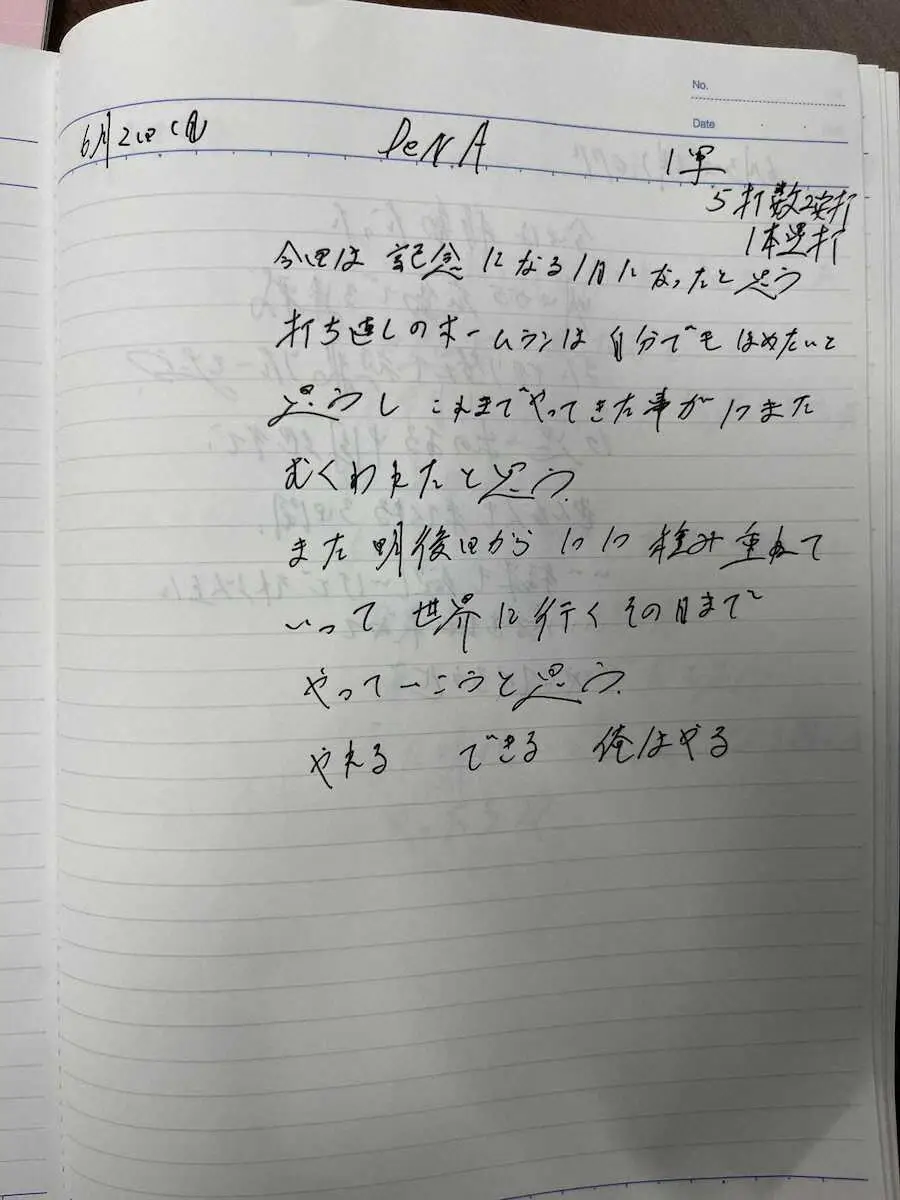 No.
Date
6月2日(日)
DeNA
1軍
5打数2安打
1本塁打
今日は記念になる1日になったと思う
打ち直しのホームランは自分でもほめたいと
思うし これまでやってきた事が1つまた
むくわれたと思う.
また明後日から1つ1つ積み重ねて
いって世界に行くその日まで
やっていこうと思う.
やれる できる 俺はやる